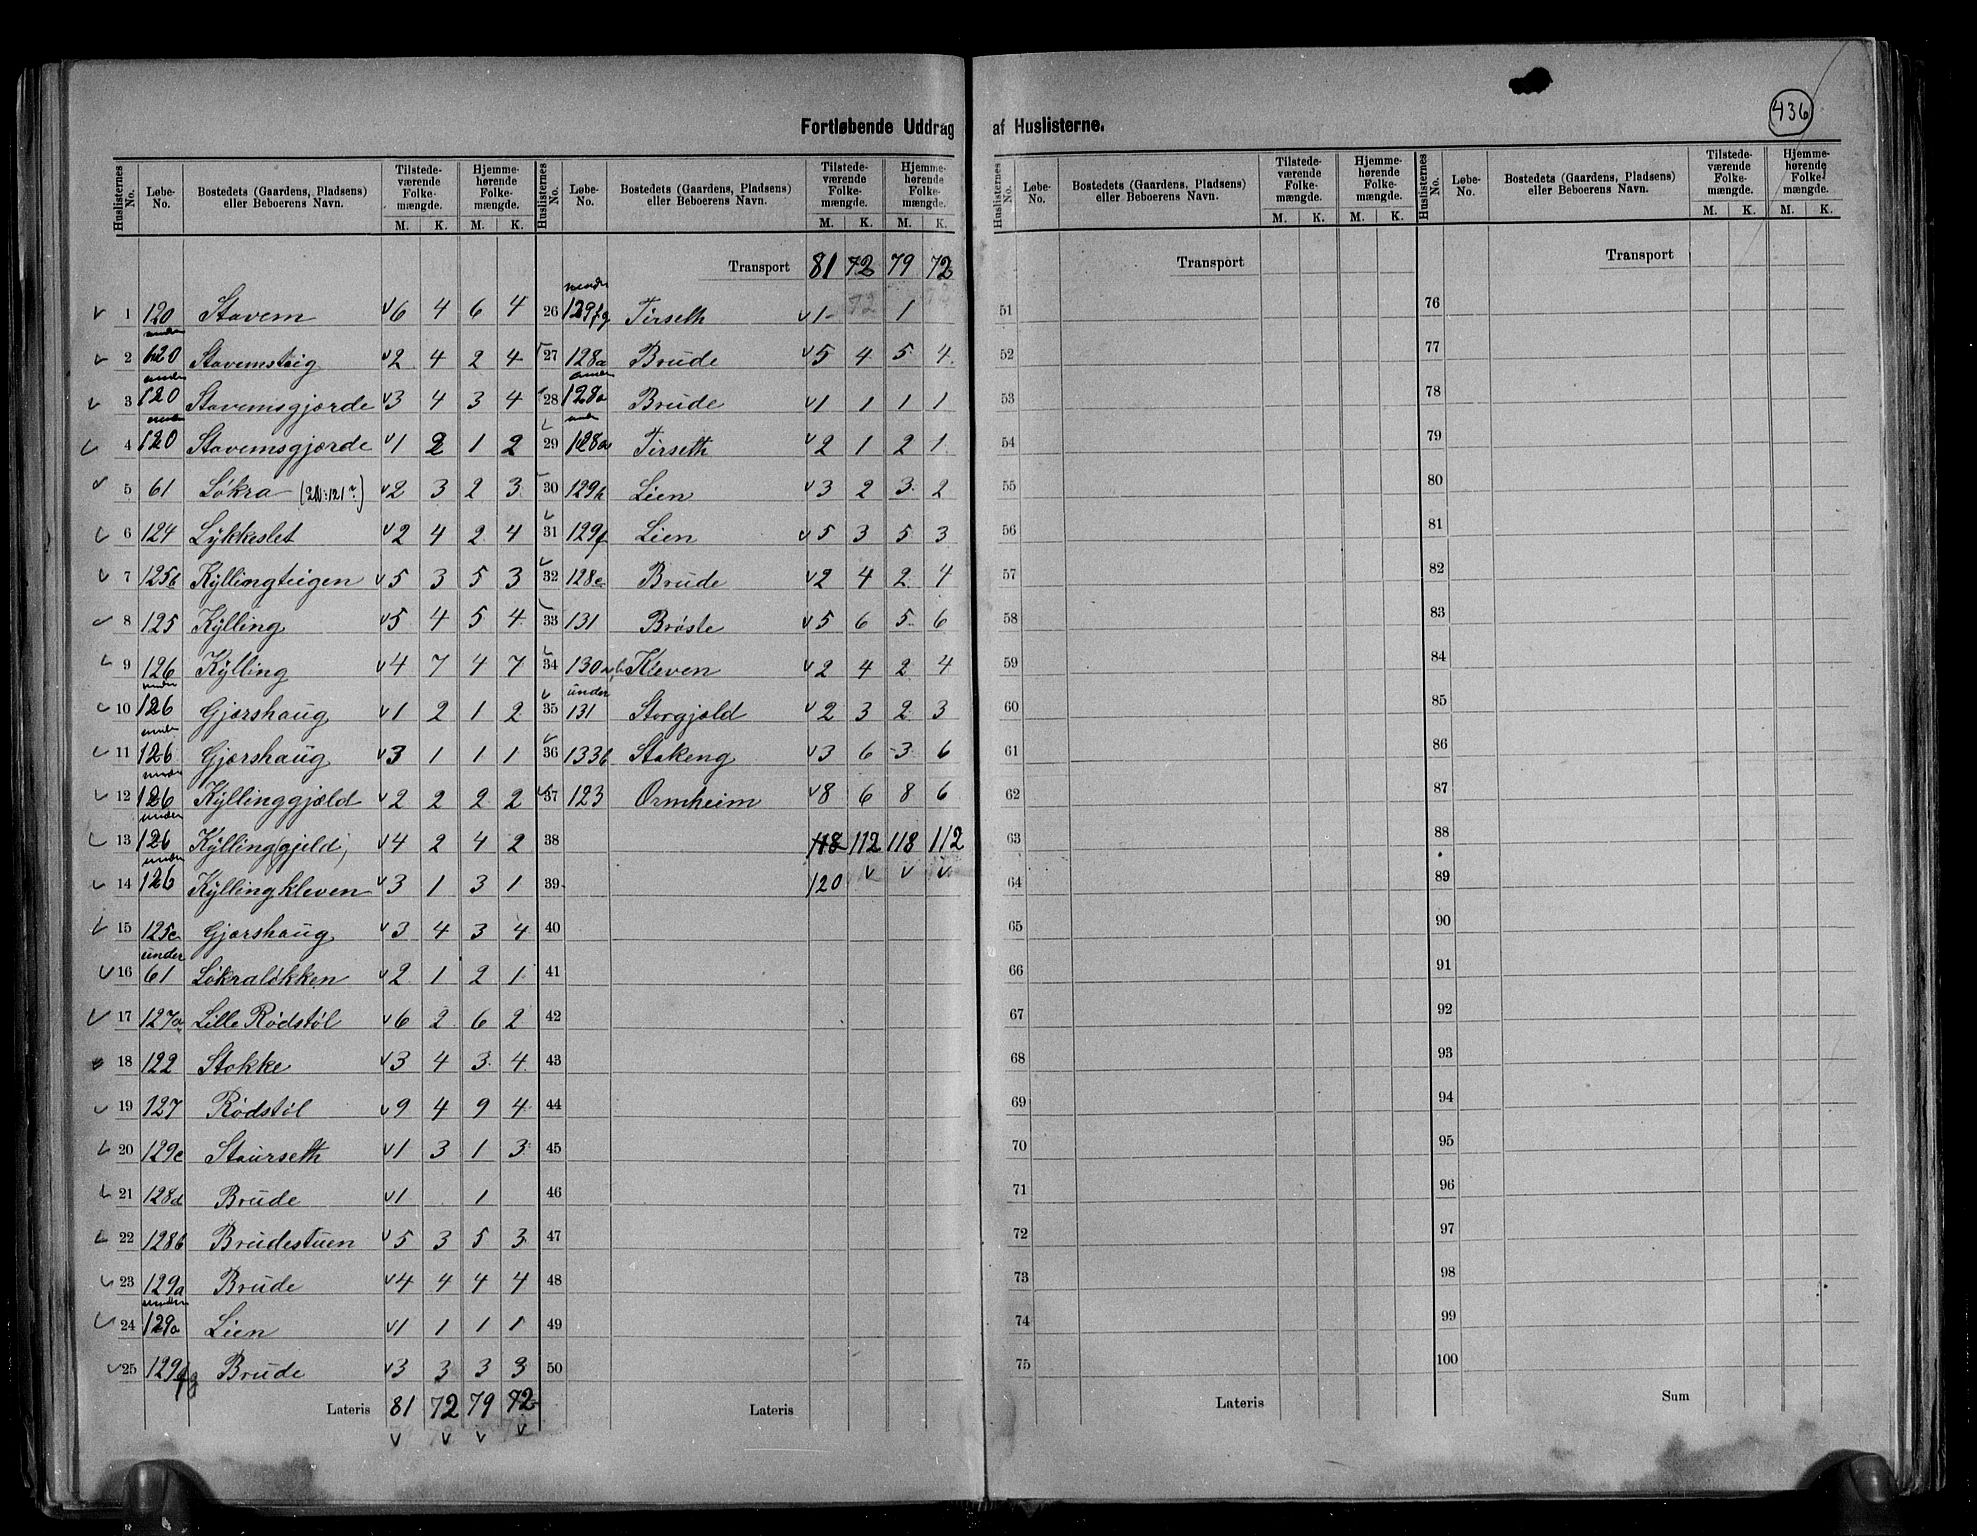 436
Fortløbende Uddrag af Huslisterne.
Huslisternes No. | Løbe-No. | Bostedets (Gaardens, Pladsens) eller Beboerens Navn. | Tilstedeværende Folkemængde. M. K. | Hjemmehørende Folkemængde. M. K.
1 120 Stavem v6 4 6 4
2 under 120 Stavemsteig v2 4 2 4
3 under 120 Stavemsgjærde v3 4 3 4
4 under 120 Stavemsgjærde v1 2 1 2
5 61 Løkra (2N:121?) v2 3 2 3
6 124 Lykkeslet v2 4 2 4
7 125b Kyllingteigen v5 3 5 3
8 125 Kylling v5 4 5 4
9 126 Kylling v4 7 4 7
10 under 126 Gjærshaug v1 2 1 2
11 under 126 Gjærshaug v3 1 1 1
12 under 126 Kyllinggjæld v2 2 2 2
13 under 126 Kyllinggjeld, v4 2 4 2
14 under 126 Kyllingkleven v3 1 3 1
15 125c Gjærshaug v3 4 3 4
16 under 61 Løkraløkken v2 1 2 1
17 127a Lille Rødstøl v6 2 6 2
18 122 Stokke v3 4 3 4
19 127 Rødstøl v9 4 9 4
20 129c Staurseth v1 3 1 3
21 128d Brude v1 1
22 128b Brudestuen v5 3 5 3
23 129a Brude v4 4 4 4
24 under 129a Lien v1 1 1 1
25 129fg Brude v3 3 3 3
Lateris 81 72 79 72
v v v v
Huslisternes No. | Løbe-No. | Bostedets (Gaardens, Pladsens) eller Beboerens Navn. | Tilstedeværende Folkemængde. M. K. | Hjemmehørende Folkemængde. M. K.
Transport 81 72 79 72
26 under 129fg Tirseth v1 1
27 128a Brude v5 4 5 4
28 under 128a Brude v1 1 1 1
29 under 128a Tirseth v2 1 2 1
30 129h Lien v3 2 3 2
31 129f Lien v5 3 5 3
32 128c Brude v2 4 2 4
33 131 Brøste v5 6 5 6
34 130a,b Kleven v2 4 2 4
35 under 131 Storgjæld v2 3 2 3
36 133b Stakeng v3 6 3 6
37 123 Ormheim v8 6 8 6
38 118 112 118 112
39 120 v v v
40
41
42
43
44
45
46
47
48
49
50
Lateris
Huslisternes No. | Løbe-No. | Bostedets (Gaardens, Pladsens) eller Beboerens Navn. | Tilstedeværende Folkemængde. M. K. | Hjemmehørende Folkemængde. M. K.
Transport
51
52
53
54
55
56
57
58
59
60
61
62
63
64
65
66
67
68
69
70
71
72
73
74
75
Lateris
Huslisternes No. | Løbe-No. | Bostedets (Gaardens, Pladsens) eller Beboerens Navn. | Tilstedeværende Folkemængde. M. K. | Hjemmehørende Folkemængde. M. K.
Transport
76
77
78
79
80
81
82
83
84
85
86
87
88
89
90
91
92
93
94
95
96
97
98
99
100
Sum